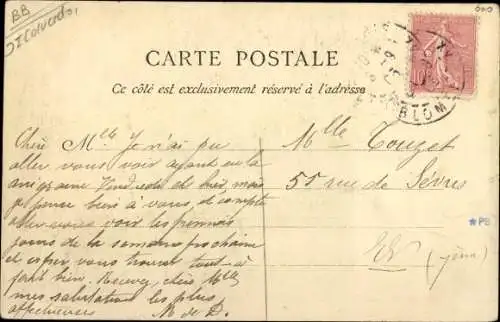 BB
CARTE POSTALE
Ce côté est exclusivement réservé à l'adresse
10
BLOM
Chère Mlle Je n'ai pu
aller vous voir ayant eu la
migraine Vendredi et hier, mais
je pense bien à vous, et compte
aller vous voir les premiers
jours de la semaine prochaine
et espère vous trouver tout à
fait bien. Recevez, chère Mlle,
mes salutations les plus
affectueuses M de D.
Mlle Touzet
55 rue de Sèvres
EV
*PB